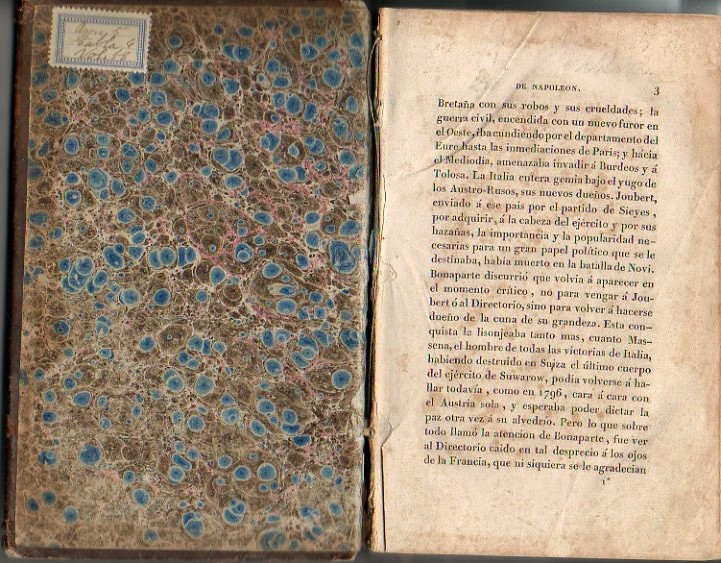 DE NAPOLEON. 3
Bretaña con sus robos y sus crueldades; la
guerra civil, encendida con un nuevo furor en
el Oeste, iba cundiendo por el departamento del
Eure hasta las inmediaciones de Paris; y hácia
el Mediodia, amenazaba invadir á Burdeos y á
Tolosa. La Italia entera gemia bajo el yugo de
los Austro-Rusos, sus nuevos dueños. Joubert,
enviado á ese pais por el partido de Sieyes,
por adquirir, á la cabeza del ejército y por sus
hazañas, la importancia y la popularidad ne-
cesarias para un gran papel político que se le
destinaba, habia muerto en la batalla de Novi.
Bonaparte discurrió que volvia á aparecer en
el momento crítico, no para vengar á Jou-
bert ó al Directorio, sino para volver á hacerse
dueño de la cuna de su grandeza. Esta con-
quista le lisonjeaba tanto mas, cuanto Mas-
sena, el hombre de todas las victorias de Italia,
habiendo destruido en Suiza el último cuerpo
del ejército de Suwarow, podia volverse á ha-
llar todavía, como en 1796, cara á cara con
el Austria sola, y esperaba poder dictar la
paz otra vez á su alvedrio. Pero lo que sobre
todo llamó la atencion de Bonaparte, fue ver
al Directorio caido en tal desprecio á los ojos
de la Francia, que ni siquiera se le agradecian
1*